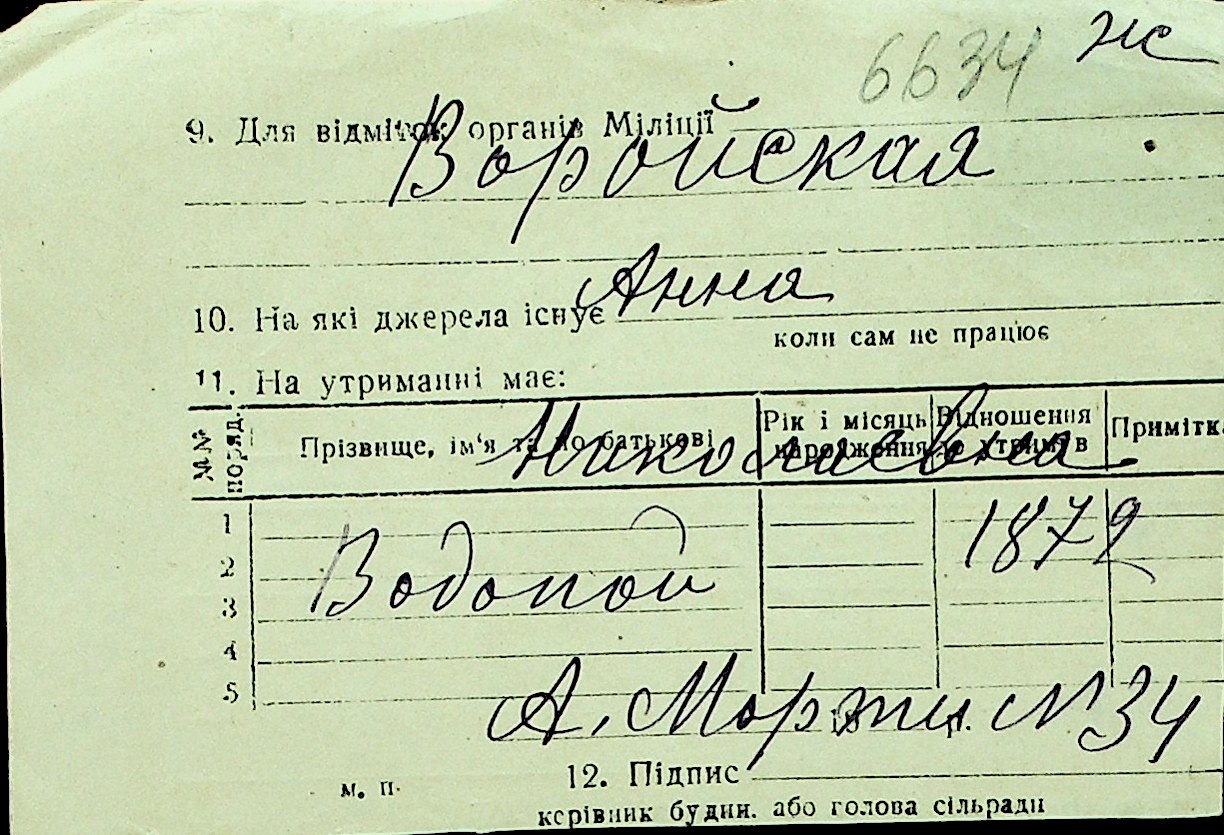 6634 не
9. Для відміток органів Міліції
Воройская
Анна
10. На які джерела існує
коли сам не працює
11. На утриманні має:
№№ поряд. Прізвище, ім'я та по батькові Рік і місяць народження Відношення Примітк
Николаевна
1
1872
2
Водопой
3
4
5
А. Марти №34
12. Підпис
м. п.
керівник будин. або голова сільради